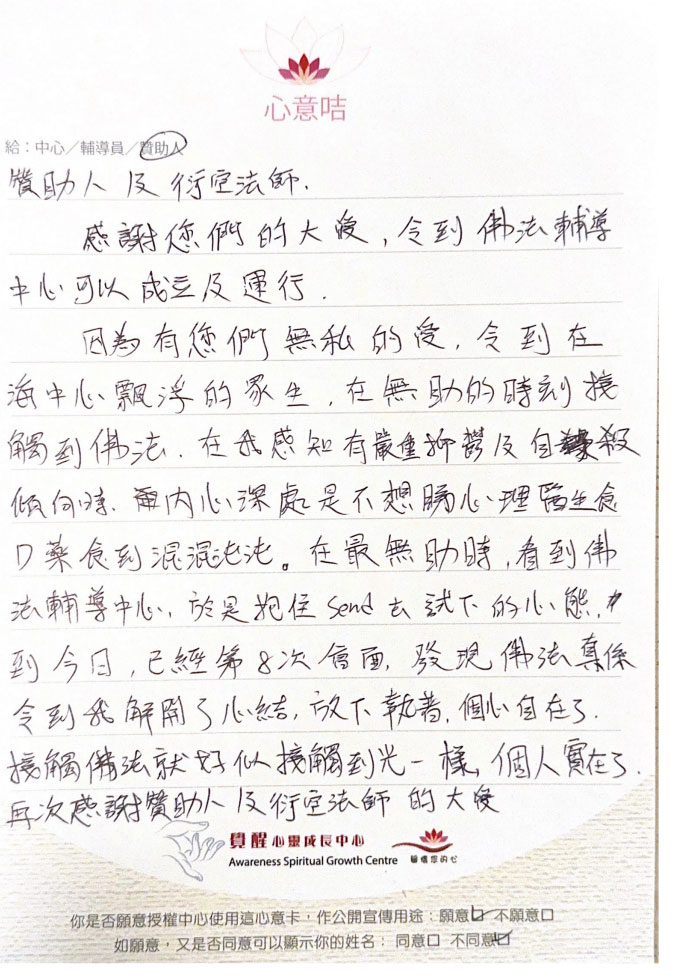 心意咭
給：中心／輔導員／贊助人
贊助人 及 衍空法師.
感謝您們的大愛，令到佛法輔導
中心可以成立及運行.
因為有您們無私的愛，令到在
海中心飄浮的眾生，在無助的時刻接
觸到佛法. 在我感知有嚴重抑鬱及自殺
傾向時. 內心深處是不想睇心理醫生食
D藥食到混混沌沌。在最無助時，看到佛
法輔導中心，於是抱住 Send 去試下的心態，
到今日，已經第8次會面，發現佛法真係
令到我解開了心結，放下執著，個心自在了.
接觸佛法就好似接觸到光一樣，個人實在了.
再次感謝贊助人及衍空法師的大愛
覺醒心靈成長中心
Awareness Spiritual Growth Centre
你是否願意授權中心使用這心意卡，作公開宣傳用途：願意☑ 不願意□
如願意，又是否同意可以顯示你的姓名： 同意□ 不同意☑